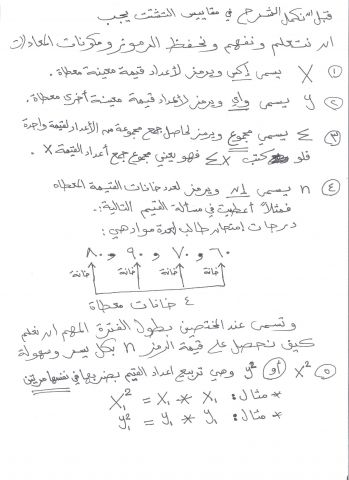 قبل ان نكمل الشرح في مقاييس التشتت يجب
ان نتعلم ونفهم ونحفظ الرموز ومكونات المعادلات
① X يسمى إكس ويرمز لأعداد قيمة معينة معطاة.
② y يسمى واي ويرمز لأعداد قيمة معينة أخرى معطاة.
③ ≤ يسمى مجموع ويرمز لحاصل جمع مجموعة من الأعداد لقيمة واحدة
فلو كتب ≤X فهو يعني مجموع جميع أعداد القيمة X.
④ n يسمى إن ويرمز لعدد خانات القيمة المعطاه
فمثلاً أعطيت في مسألة القيم التالية:.
درجات امتحان طالب لعدة مواد هي:
٦٠ و ٧٠ و ٩٠ و ٨٠
خانة خانة خانة خانة
٤ خانات معطاة
وتسمى عند المختصين بطول الفترة المهم ان نعلم
كيف نحصل على قيمة الرمز n بكل يسر وسهولة
⑤ X² أو y² وهي تربيع اعداد القيم بضربها في نفسها مرتين
* مثال: X₁² = X₁ * X₁
* مثال: y₁² = y₁ * y₁